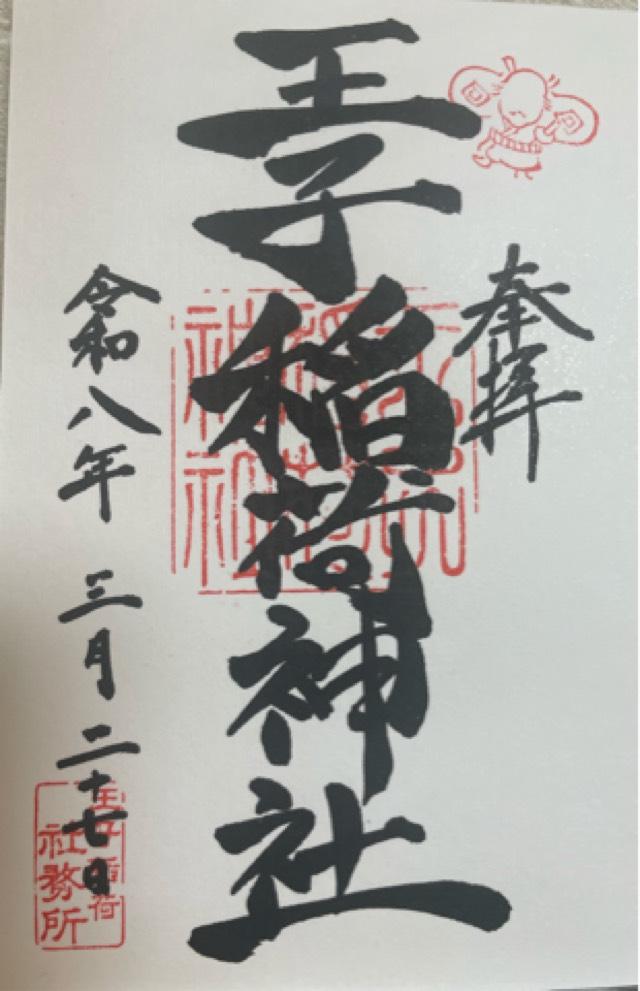 奉拝
王子稲荷神社
令和八年 三月二十七日
王子稲荷
社務所